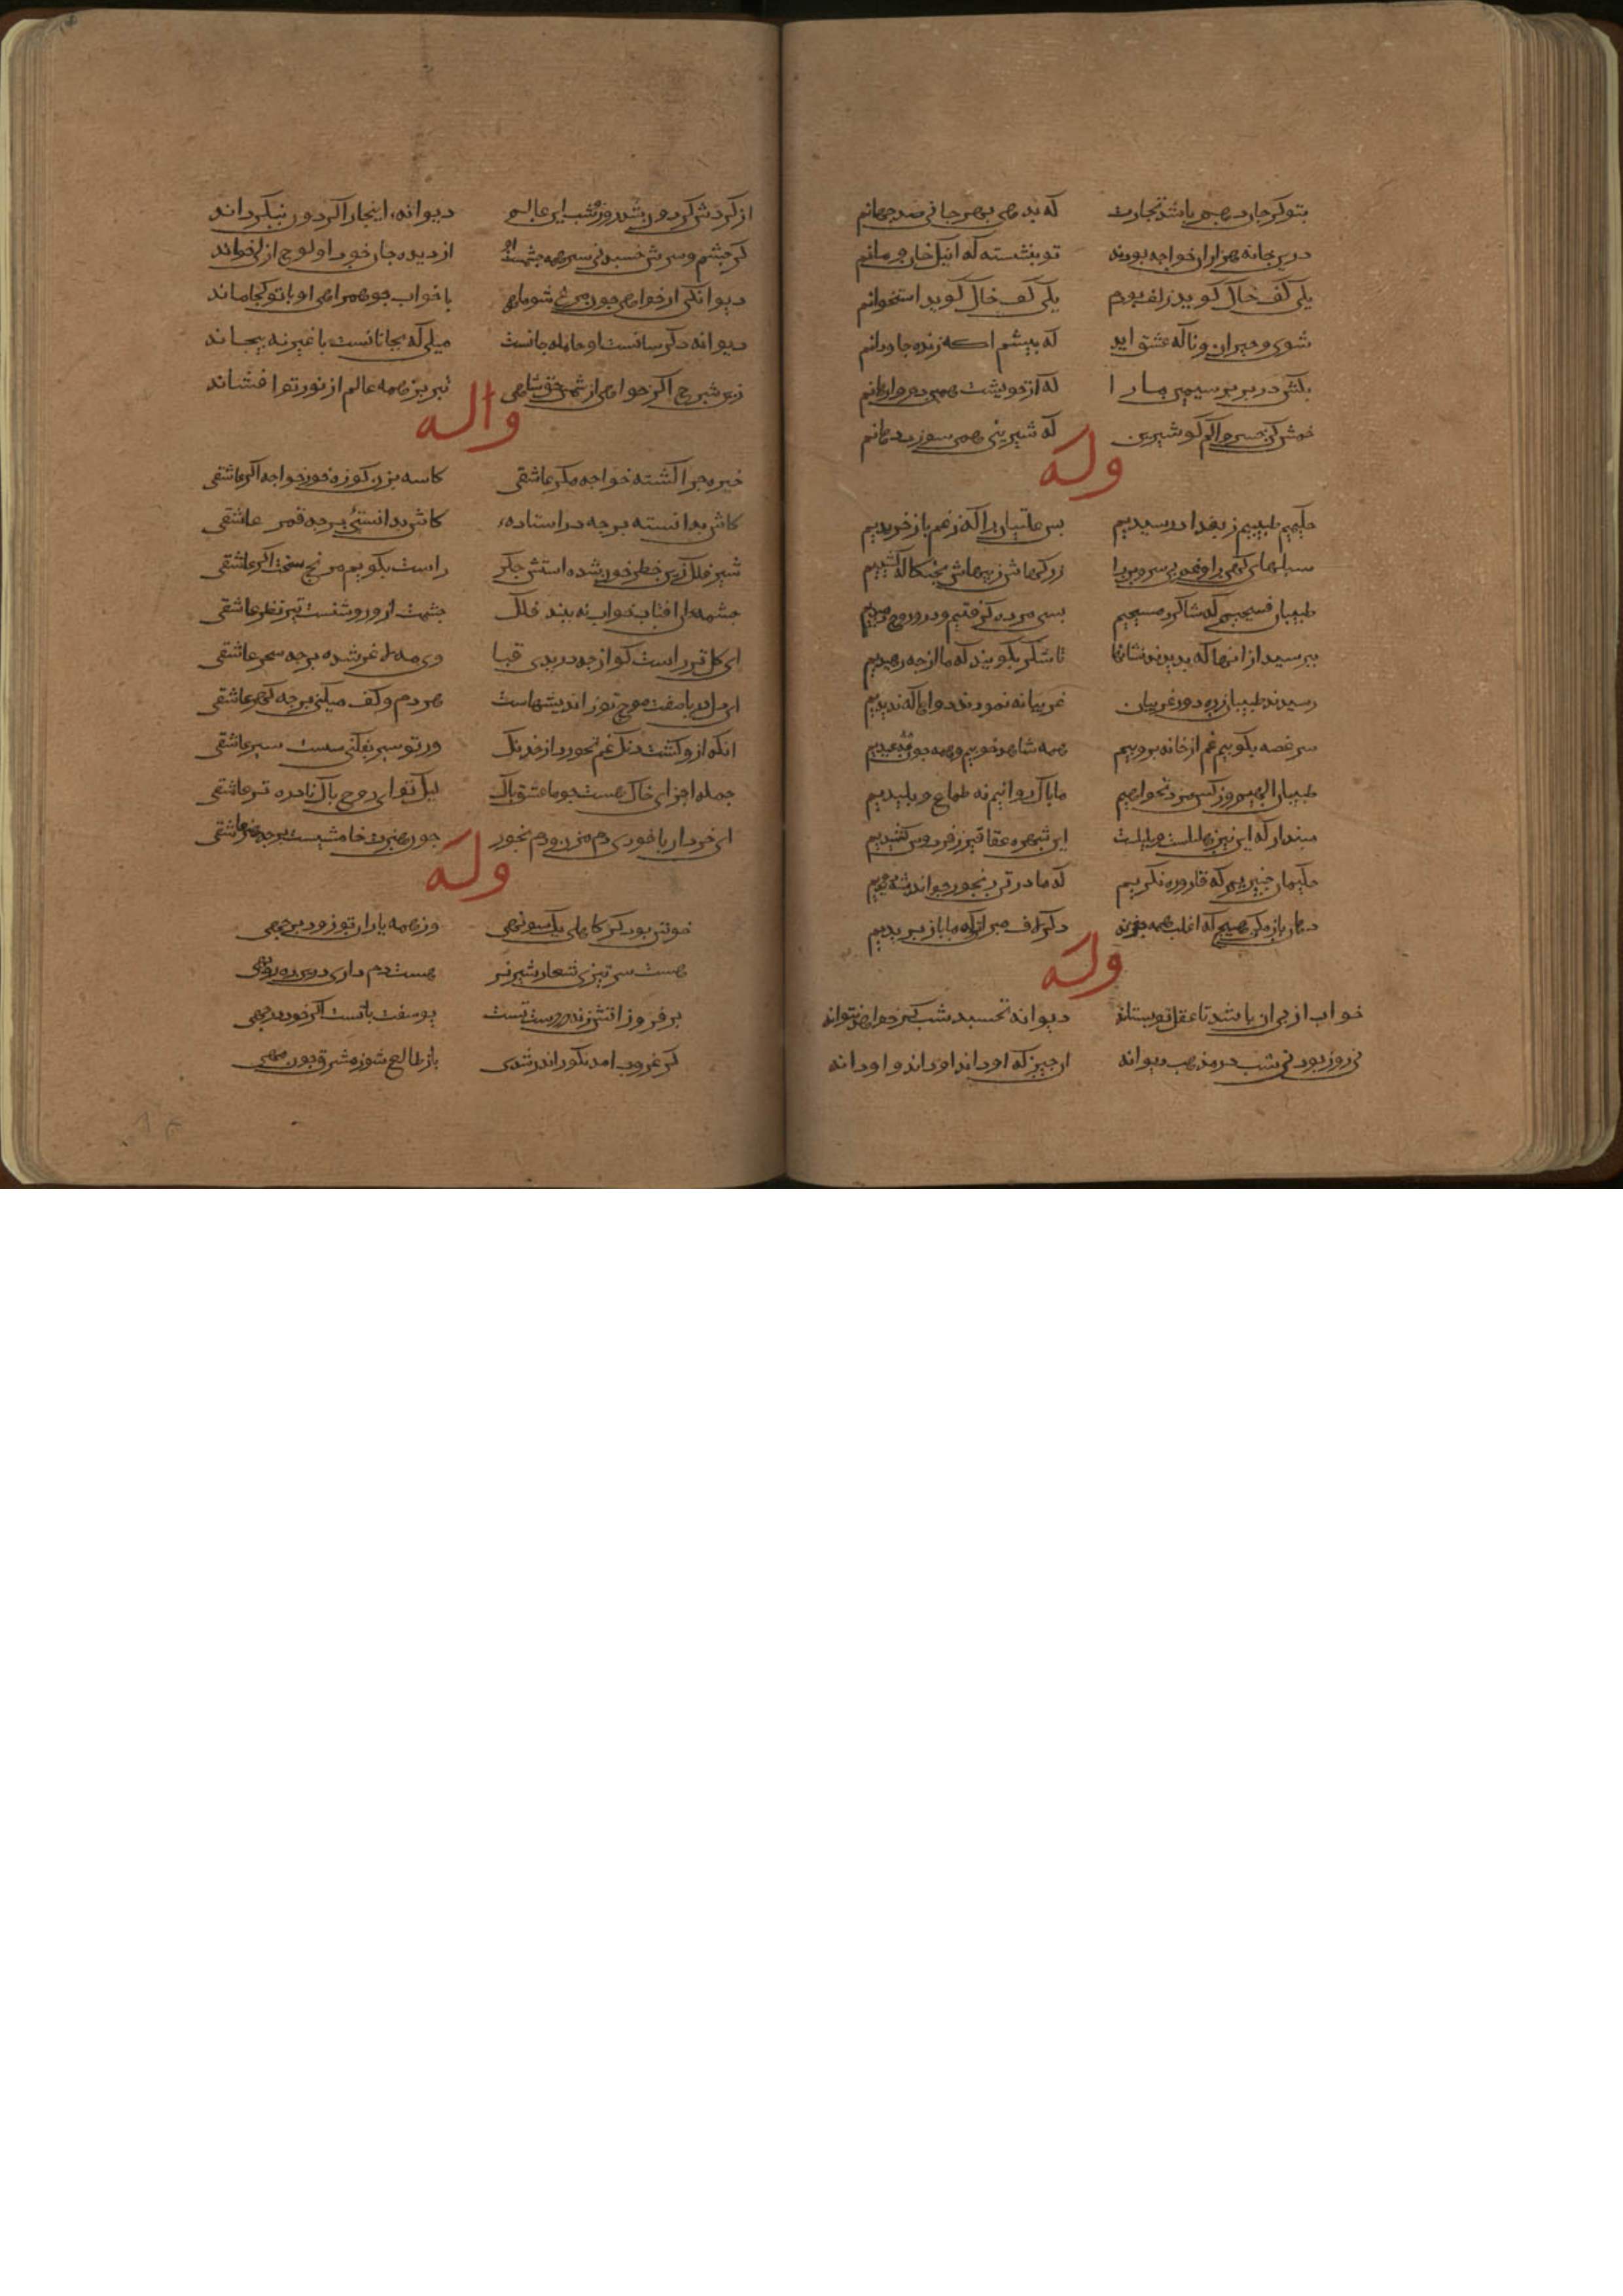 بتو کر جان دهم باشد تجارت که بدهی بهر جانی صد جهانم
درین خانه هزاران خواجه بودند تو بنشسته که اینک خان و مانم
یکی کف خاک کوید زلف بودم یکی کف خاک کوید استخوانم
شوی حیران و ناکه عشق اید که بیشم ا که زنده جاودانم
بکش در بر بر سیمین ما را که از خویشت همین دم وارهانم
خمش کن خسروا کم کو شیرین که شیرینی همی سوزد دهانم
وله
حکیمیم طبیبیم ز بغداد رسیدیم بسی علتیان را که ز غم باز خریدیم
سبلهای کهن را غم بی سر و بن را ز رکهاش و پیهاش بچنکاله کشیدیم
طبیبان فصیحیم که شاکرد مسیحیم بسی مرده کرفتیم و درو روح دمیدیم
ببرسید از انها که بدیدند نشانها تا شکر بکویند که ما از چه رهیدیم
رسیدند طبیبان ز ره دور غریبان غریبانه نمودند دواها که ندیدیم
سر غصه بکوبیم غم از خانه بروبیم همه شاهد خوبیم و همه چون مه عیدیم
طبیبان الهیم و ز کس مزد نخواهیم ما باک روانیم نه طماع و بلیدیم
مبندار که این نیز هلیله است و بلیله است این شهره عقاقیر ز فردوس کشیدیم
حکیمان خبیریم که قاروره نکریم که ما در تن رنجور جو اندیشه دویدیم
دهان باز مکن هیج که اغلب همه جغدند دکر لاف مبران که ما باز بریدیم
وله
خواب از بی ان باشد تا عقل تو بستاند دیوانه نخسبد شب کر خواهد نتواند
نی روز بود نی شب در مذهب دیوانه ان جیز که او داند او داند و او داند
از کردش کردون شد روز و شب این عالم دیوانه اینجا را کردون نبکرداند
کر جشم و سرش خسبد نی سر همه جشمست او از دیده جان خود او لوح ازل خواند
دیوانکی ار خواهی جون مرغ شو و ماهی با خواب جو همراهی او با تو کجا ماند
دیوانه دکر سانست او حامله جانست میلی که بجانانست با غیر نه بیجاند
زین شرح اکر خواهی از شمس حق شاهی تبریز همه عالم از نور تو افشاند
واله
خیره جرا کشته خواجه مکر عاشقی کاسه بزن کوزه خور خواجه اکر عاشقی
کاش بدانسته بر جه در استاده کاش بدانستئی بر جه قمر عاشقی
شیر فلک زین خطر خون شده استش جکر راست بکویم مرنج سخت اکر عاشقی
جشمه ان افتاب خواب نه بیند فلک جشمت ازو روشنست تیز نظر عاشقی
ای کل تر راست کو از جه دریدی قبا وی مه لاغر شده بر جه سحر عاشقی
ای دل دریا صفت موج تو ز اندیشهاست هر دم و کف میکنی بر جه کهر عاشقی
انکه ازو کشت دنک غم نخورد از خدنک ور تو سبر بفکنی سست سبر عاشقی
جمله اجزای خاک هست جو ما عشق باک لیک تو ای روح باک نادره تر عاشقی
ای خرد ار باخودی دم مزن و دم نخور جون هنرت خامشیست بر جه هنر عاشقی
وله
خوش بود کر کاهلی یک سو نهی وز همه یاران تو زودی بر جهی
هست سر تیزی شعار شیر نر هست دم داری درین ره روبهی
بر فروز اتش زنه در دست تست یوسفت با تست اکر خود در جهی
کر غروب امد نکو اندر شدی باز طالع شو ز مشرق جون مهی